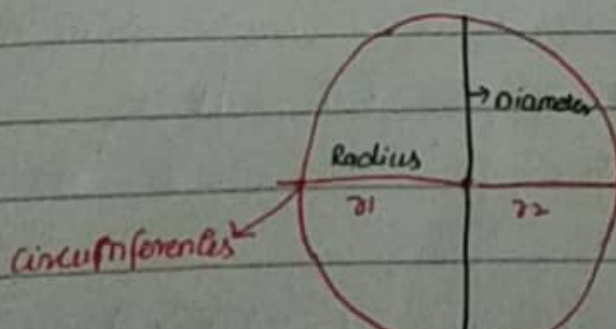 Diameter
Radius
r1 r2
circumferences